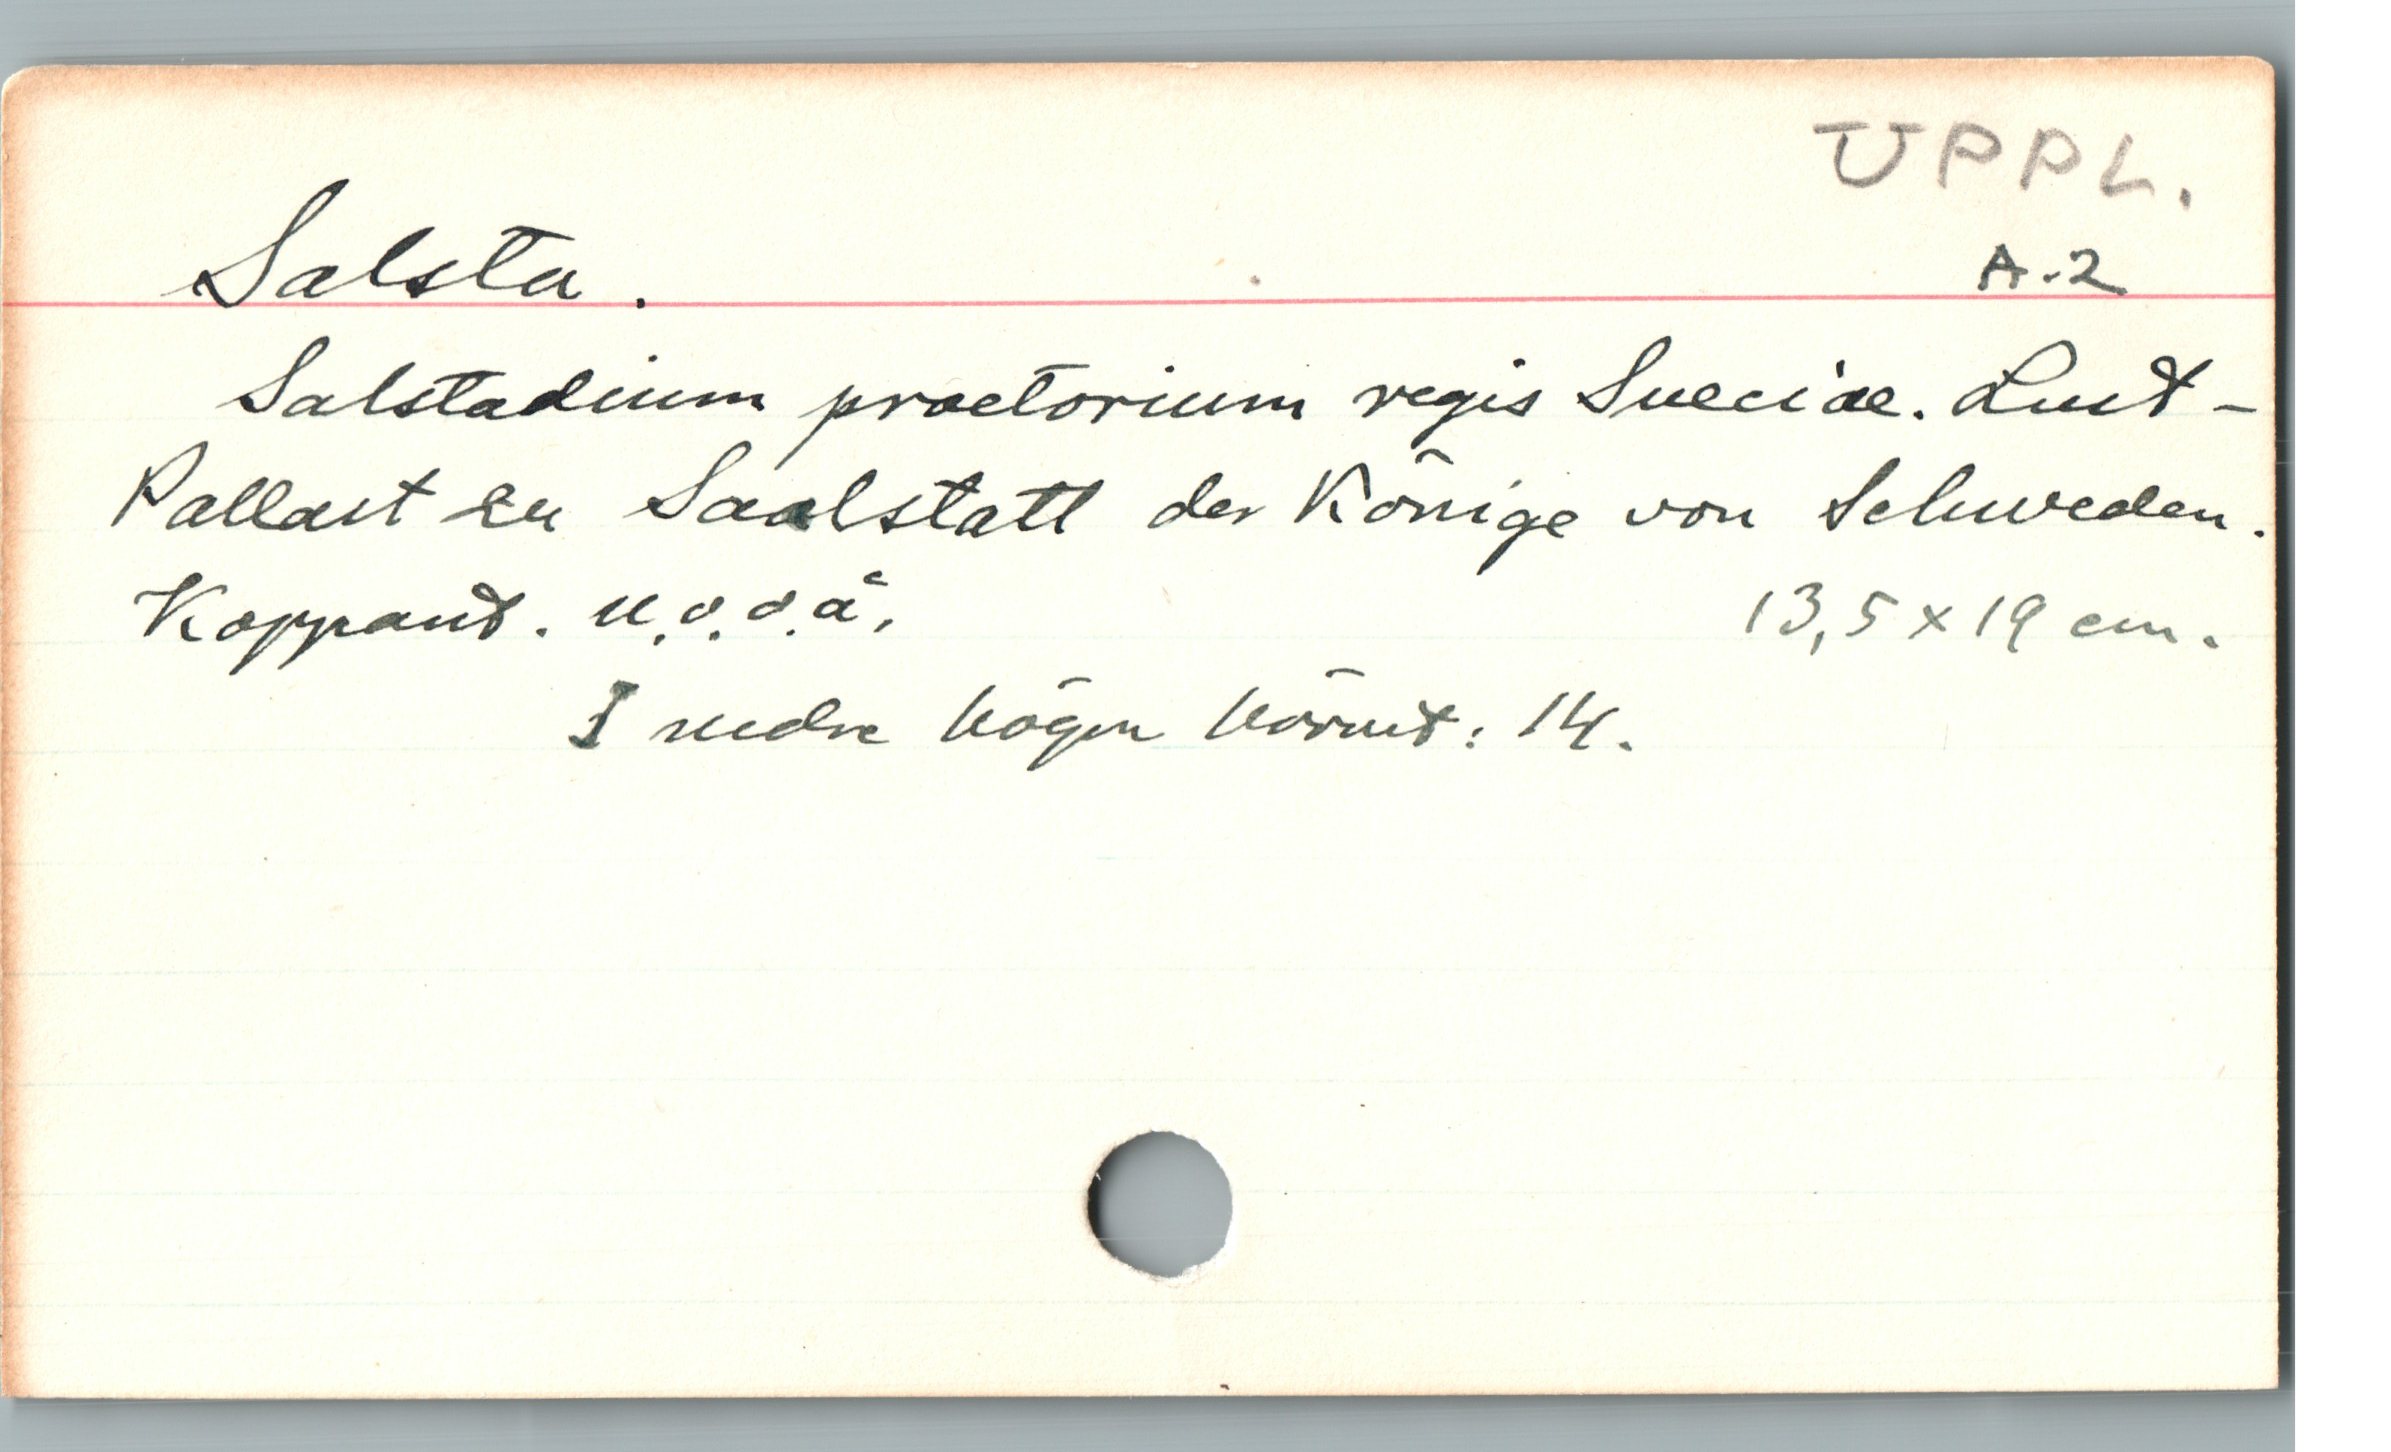 UPPL.
Salsta.
A.2
Salstadium praetorium regis Sueciae. Lust-
Pallast zu Saalstatt der Könige von Schweden.
Kopparst. u.o.o.å.
13,5 x 19 cm.
I nedre högra hörnet: 14.